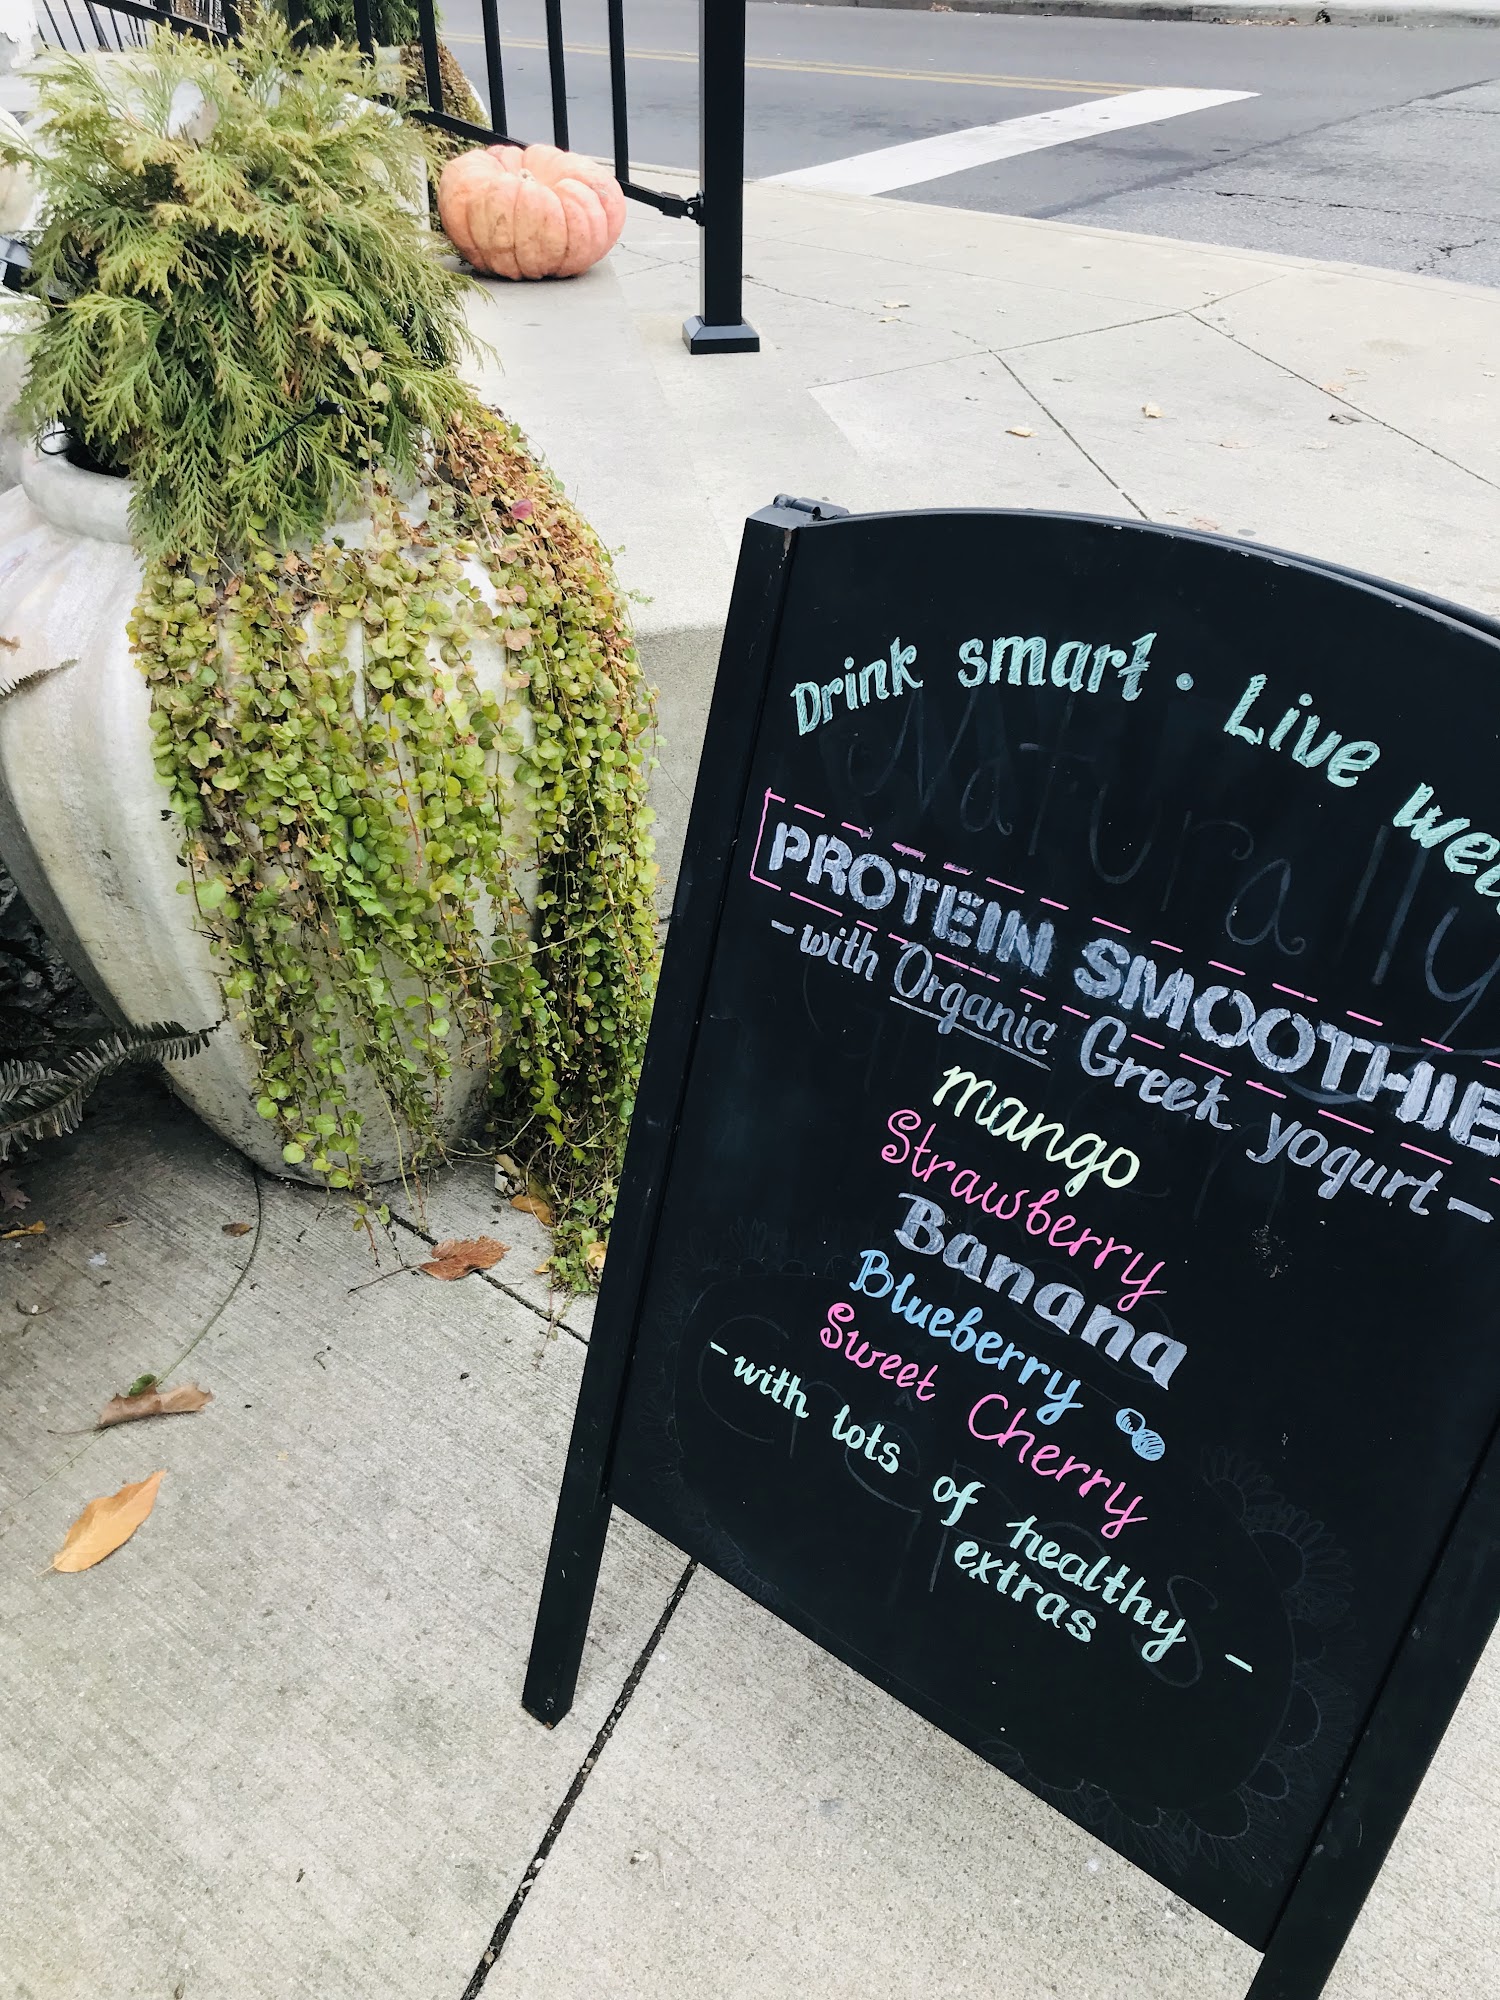 Drink smart · Live
PROTEIN SMOOTHIE
-with Organic Greek yogurt-
mango
Strawberry
Banana
Blueberry
Sweet Cherry
-with lots of healthy
extras -
Naturally